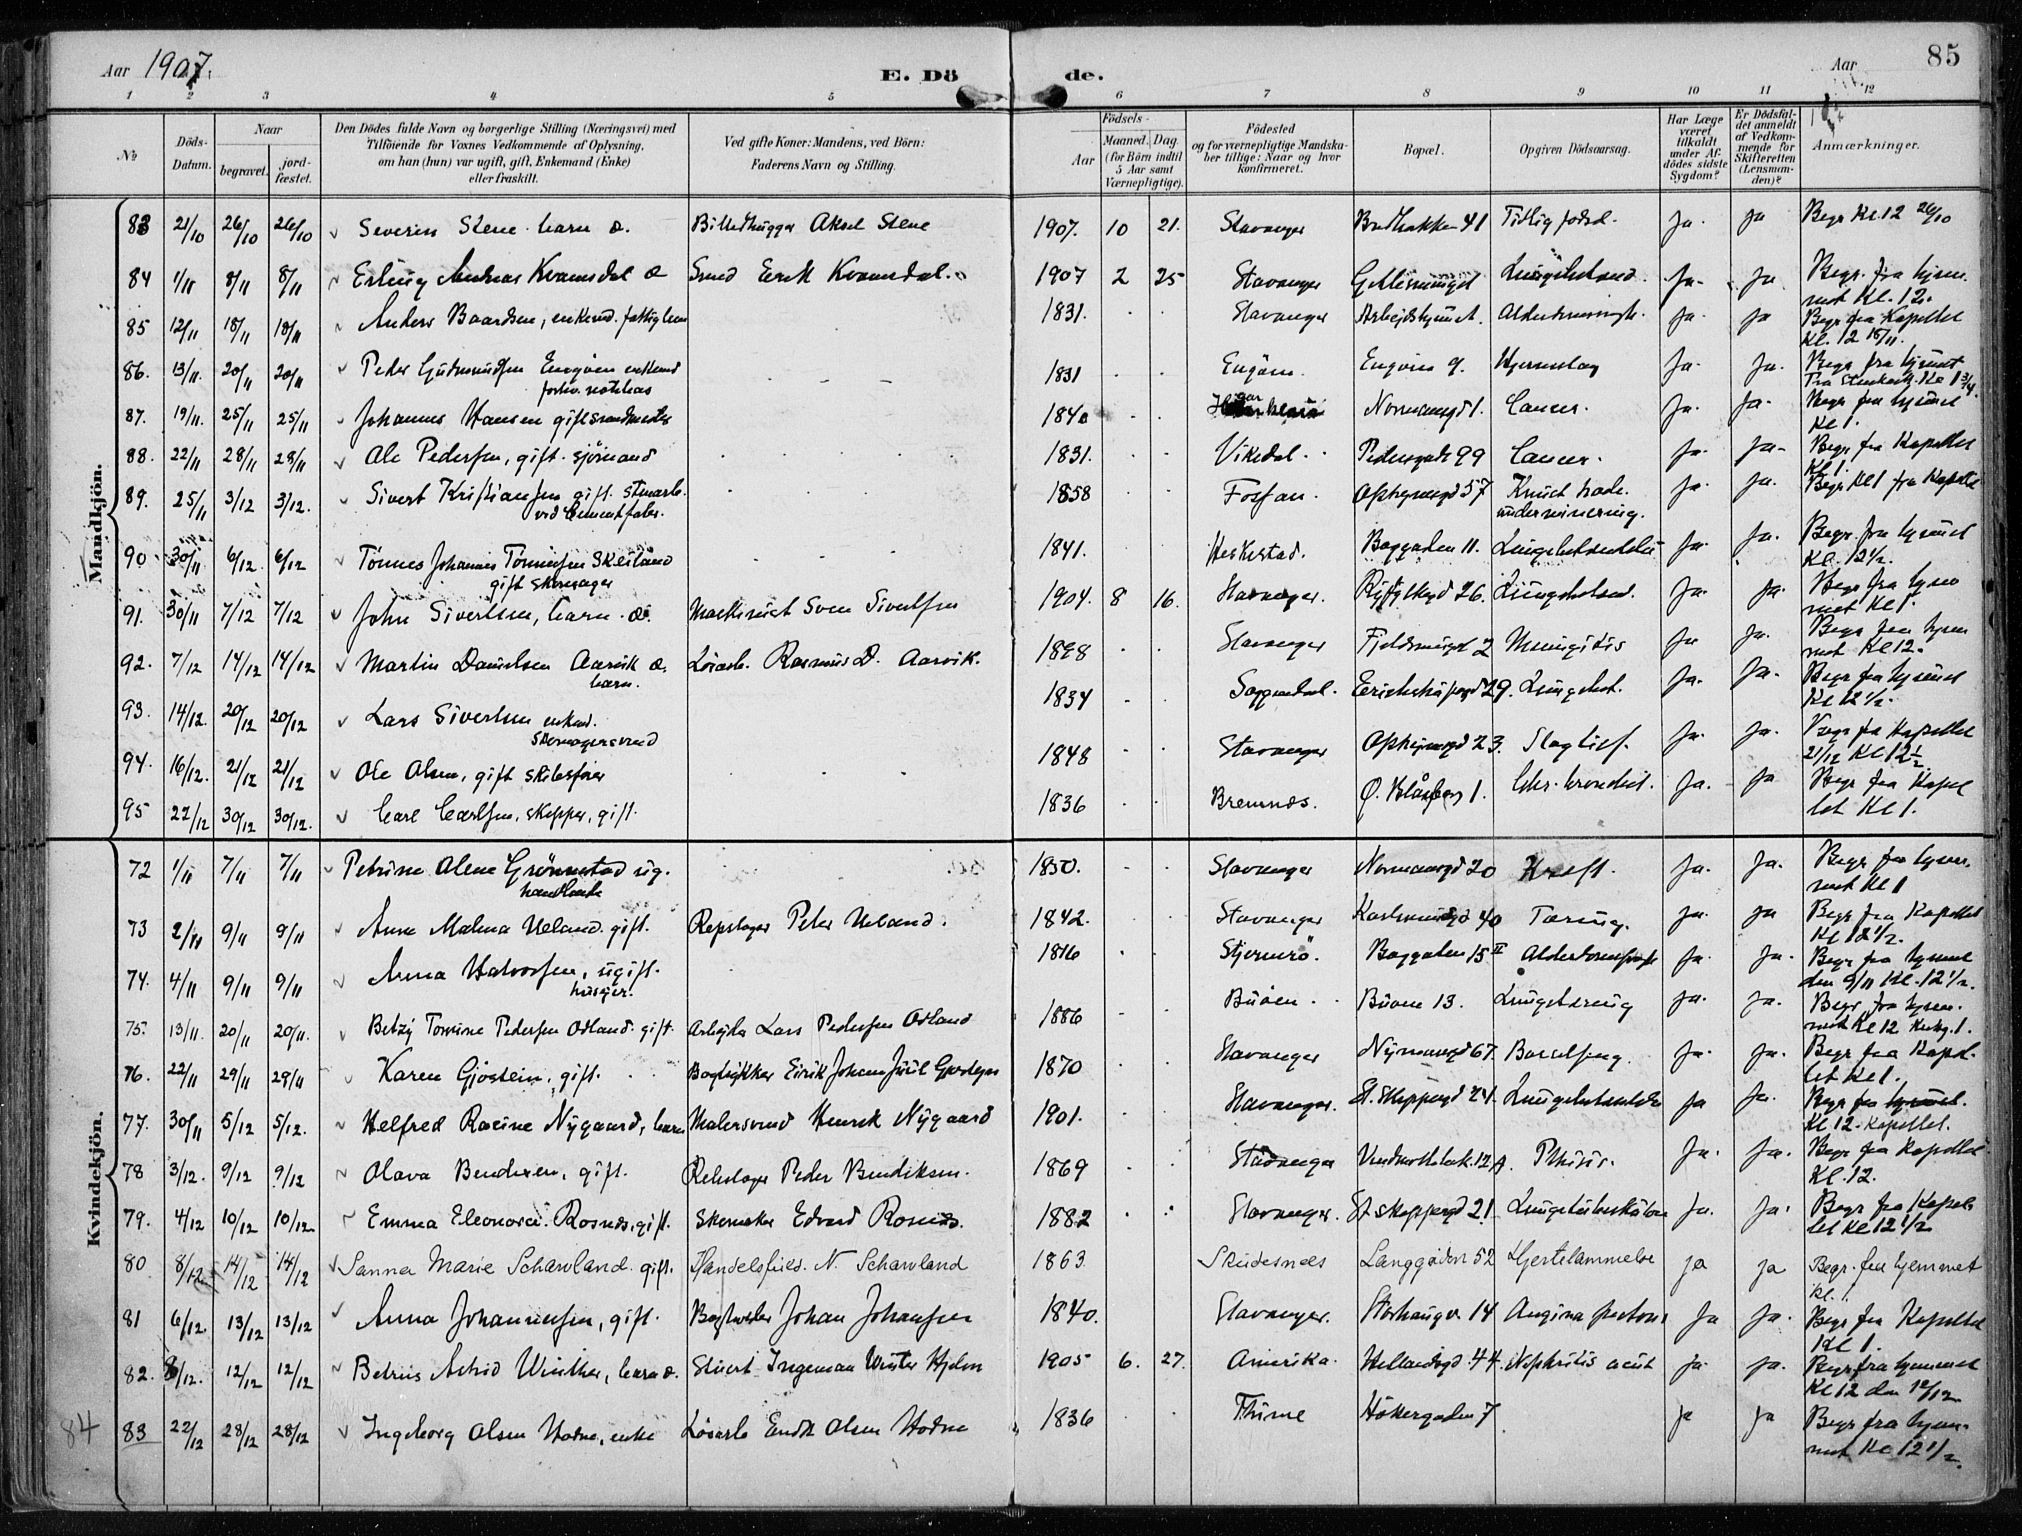 Aar 1907.
E. Dö de.
Aar
85
1 2 3 4 5 6 7 8 9 10 11 12
№
Döds-Datum.
Naar
begravet.
jord-fæstet.
Den Dödes fulde Navn og borgerlige Stilling (Næringsvei) med
Tilföiende for Voxnes Vedkommende af Oplysning,
om han (hun) var ugift, gift, Enkemand (Enke)
eller fraskilt.
Ved gifte Koner: Mandens, ved Börn:
Faderens Navn og Stilling.
Födsels-
Aar
Maaned. Dag.
(for Börn indtil
5 Aar samt
Værnepligtige).
Födested
og for værnepligtige Mandska-
ber tillige: Naar og hvor
konfirmeret.
Bopæl.
Opgiven Dödsaarsag.
Har Læge
været
tilkaldt
under Af-
dödes sidste
Sygdom?
Er Dödsfal-
det anmeldt
af Vedkom-
mende for
Skifteretten
(Lensman-
den)?
Anmærkninger.
Mandkjön.
83 21/10 26/10 26/10 Severin Stene barn æ. Billedhugger Aksel Stene 1907. 10 21. Stavanger 41 Tidlig fødsel. Ja. Ja Begr Kl. 12 26/10
84 1/11 8/11 8/11 Erling Andreas Kvamsdal æ Smed Eerik Kvamsdal. 1907 2 25 Stavanger Ja. Ja Begr. fra hjem
met Kl. 12.
85 12/11 18/11 18/11 Anders Baardsen, enkemd. fattiglem 1831. Stavanger Arbejdshjemmet. Ja. Ja Begr fra Kapellet
Kl. 12 18/11.
86. 13/11. 20/11 20/11 Peder Gudmundsen Engøen enkemd
forhv. 1831 Engøen. Engøen 9. Hjerneslag Ja. Ja. Begr fra hjemmet
Kl 1 3/4.
87. 19/11. 25/11 25/11 Johannes Hansen gift 1840 Normansgd 1. Cancer. Ja. Ja. Begr fra hjemmet
Kl 1.
88. 22/11 28/11 28/11 Ole Pedersen, gift. sjömand 1831. Vikedal. Pedersgade 99 Cancer. Ja. Ja. Begr fra Kapellet
Kl 1.
89. 25/11 3/12 3/12. Sivert Kristiansen gift.
ved Cementfabr. 1858 Fossan. 57 Knust hode.
underminering. Ja. Ja. Begr Kl 1 fra Kapellet
90 30/11 6/12 6/12 Tönnes Johannes Tönnesen Skeiland
gift skomager 1841. Heskestad. Baggaden 11. Ja. Ja. Begr. fra hjemmet
Kl. 12 1/2.
91. 30/11 7/12 7/12 John Sivertsen, barn. æ. Maskinist Sven Sivertsen 1904. 8 16. Stavanger. 26. Ja. Ja. Begr fra hjem
met Kl 1.
92. 7/12 14/12 14/12 Martin Danielsen Aarvik æ.
barn. Løsarb. Rasmus D. Aarvik. 1898 Stavanger 2 Meningitis Ja Ja. Begr fra hjem
met Kl 12.
93. 14/12. 20/12 20/12 Lars Sivertsen enkemd.
Skomagersvend 1834 Soggendal. 29. Ja. Ja. Begr fra hjemmet
Kl 12 1/2.
94. 16/12. 21/12 21/12 Ole Olsen, gift skibsfører 1848 Stavanger 23. Ja. Ja. Begr fra Kapellet
21/12 Kl 12 1/2
95 22/12 30/12 30/12. Carl Carlsen, skipper, gift. 1836 Bremnes. Ø. Blåsberg 1. Chr. bronchit. Ja. Ja Begr fra Kapel
let Kl 1.
Kvindekjön.
72 1/11 7/11 7/11 Petrine Olene Grønnestad ug. 1850. Stavanger Normansgd 20 Kræft. Ja. Ja. Begr fra hjem
met Kl 1
73 2/11 9/11 9/11 Anne Malena Ueland. gift. Repslager Peter Ueland. 1842. Stavanger 40 Tæring. Ja. Ja Begr fra Kapellet
Kl 12 1/2.
74. 4/11 9/11 9/11 Anna Halvorsen, ugift.
1816 Stjernerø Baggaden 15 II Ja. Ja. Begr fra hjemmet
den 9/11 Kl. 12 1/2.
75. 13/11. 20/11 20/11. Betzy Tomine Pedersen Odland. gift. Arbejder Lars Pedersen Odland 1886 Buøen. Buøen 13. Lungetæring Ja. Ja. Begr fra hjem-
met Kl 12
76. 22/11 29/11 29/11 Karen Gjøstein, gift. Bogtrykker Eirik Johan Juul Gjøstein 1870 Stavanger Nymansgd 67. Barselseng. Ja. Ja. Begr fra Kapel-
let Kl 1.
77. 30/11 5/12 5/12. Helfred Racine Nygaard, barn Malersvend Henrik Nygaard 1901. Stavanger. St. Skippergd 24. Ja Ja. Begr fra hjemmet.
Kl 12. Kapellet.
78 3/12. 9/12 9/12 Olava Bendixen, gift. Rebslager Peder Bendiksen. 1869 Stavanger 12A. Phtisis. Ja. Ja. Begr fra Kapellet
Kl. 12.
79. 4/12 10/12 10/12 Emma Eleonora Rosnes, gift. Skomaker Edvard Rosnes. 1882 Stavanger. St skippergd 21. Ja. Ja. Begr fra Kapel-
let Kl 12 1/2
80 8/12 14/12 14/12 Sanna Marie Schawland. gift. N. Schawland 1863 Skudesnes Langgaden 52 Hjertelammelse Ja Ja Begr. fra hjemmet
Kl. 1.
81 6/12 13/12 13/12 Anna Johannesen, gift. Johan Johansen 1840. Stavanger. Storhaugv. 14 Angina pectoris Ja Ja. Begr fra Kapellet
Kl 1.
82. 8/12. 12/12 12/12 Astrid Winther, barn æ. Stuert Ingeman Winter Hjelm 1905 6. 27. Amerika. 44. Nephritis acut Ja. Ja. Begr fra hjemmet
Kl 12 den 12/12
84 83 22/12 28/12 28/12 Ingeborg Olsen Hodne, enke Løsarb Endre Olsen Hodne 1836 Thime Høkergaden 7 Ja Ja Begr fra hjem-
met Kl 12 1/2.